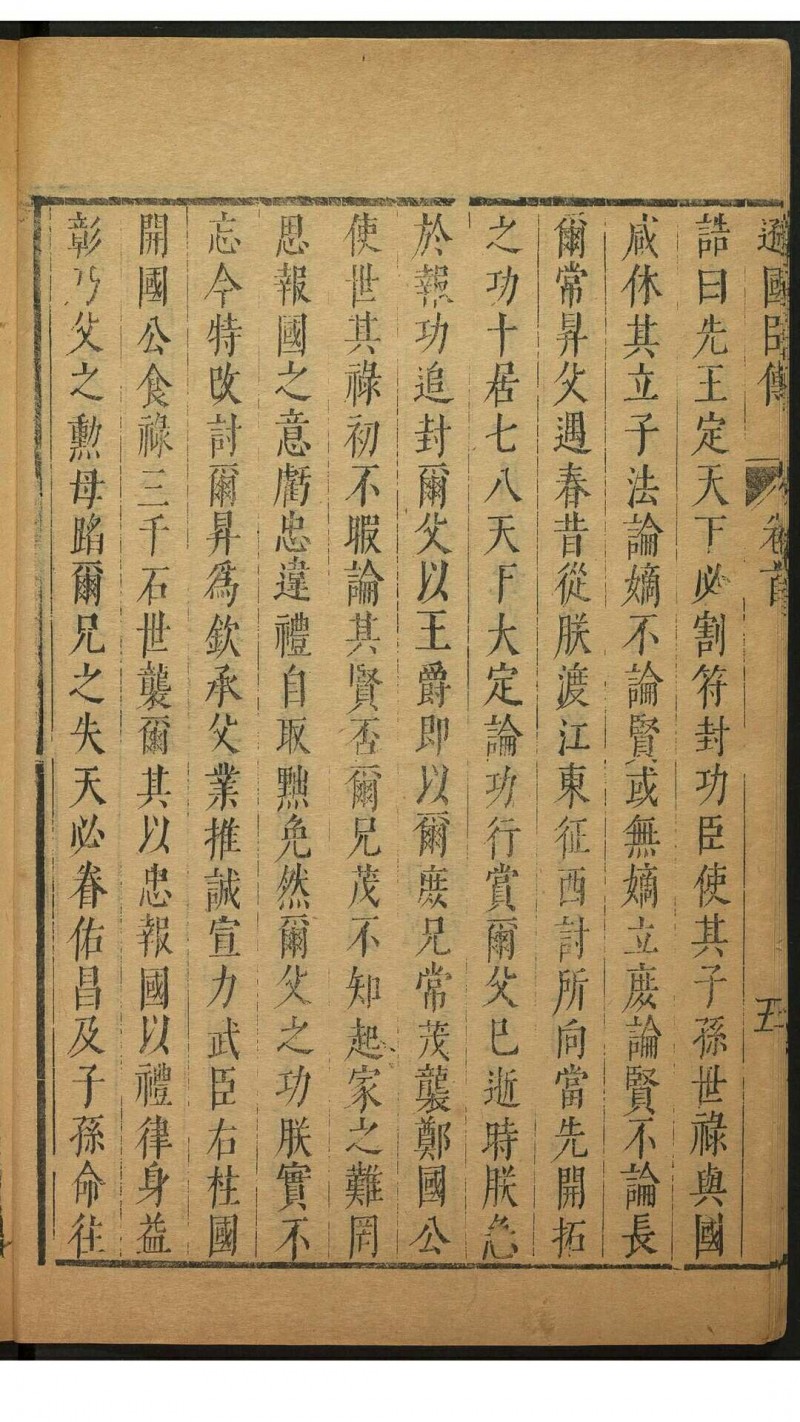 遜國臣傳 卷首 五
誥曰先王定天下必割符封功臣使其子孫世祿與國
咸休其立子法論嫡不論賢或無嫡立庶論賢不論長
爾常昇父遇春昔從朕渡江東征西討所向當先開拓
之功十居七八天下大定論功行賞爾父巳逝時朕急
於報功追封爾父以王爵即以爾庶兄常茂襲鄭國公
使世其祿初不暇論其賢否爾兄茂不知起家之難罔
思報國之意虧忠違禮自取黜免然爾父之功朕實不
忘今特改討爾昇爲欽承父業推誠宣力武臣右柱國
開國公食祿三千石世襲爾其以忠報國以禮律身益
彰乃父之勲母蹈爾兄之失天必眷佑昌及子孫命往